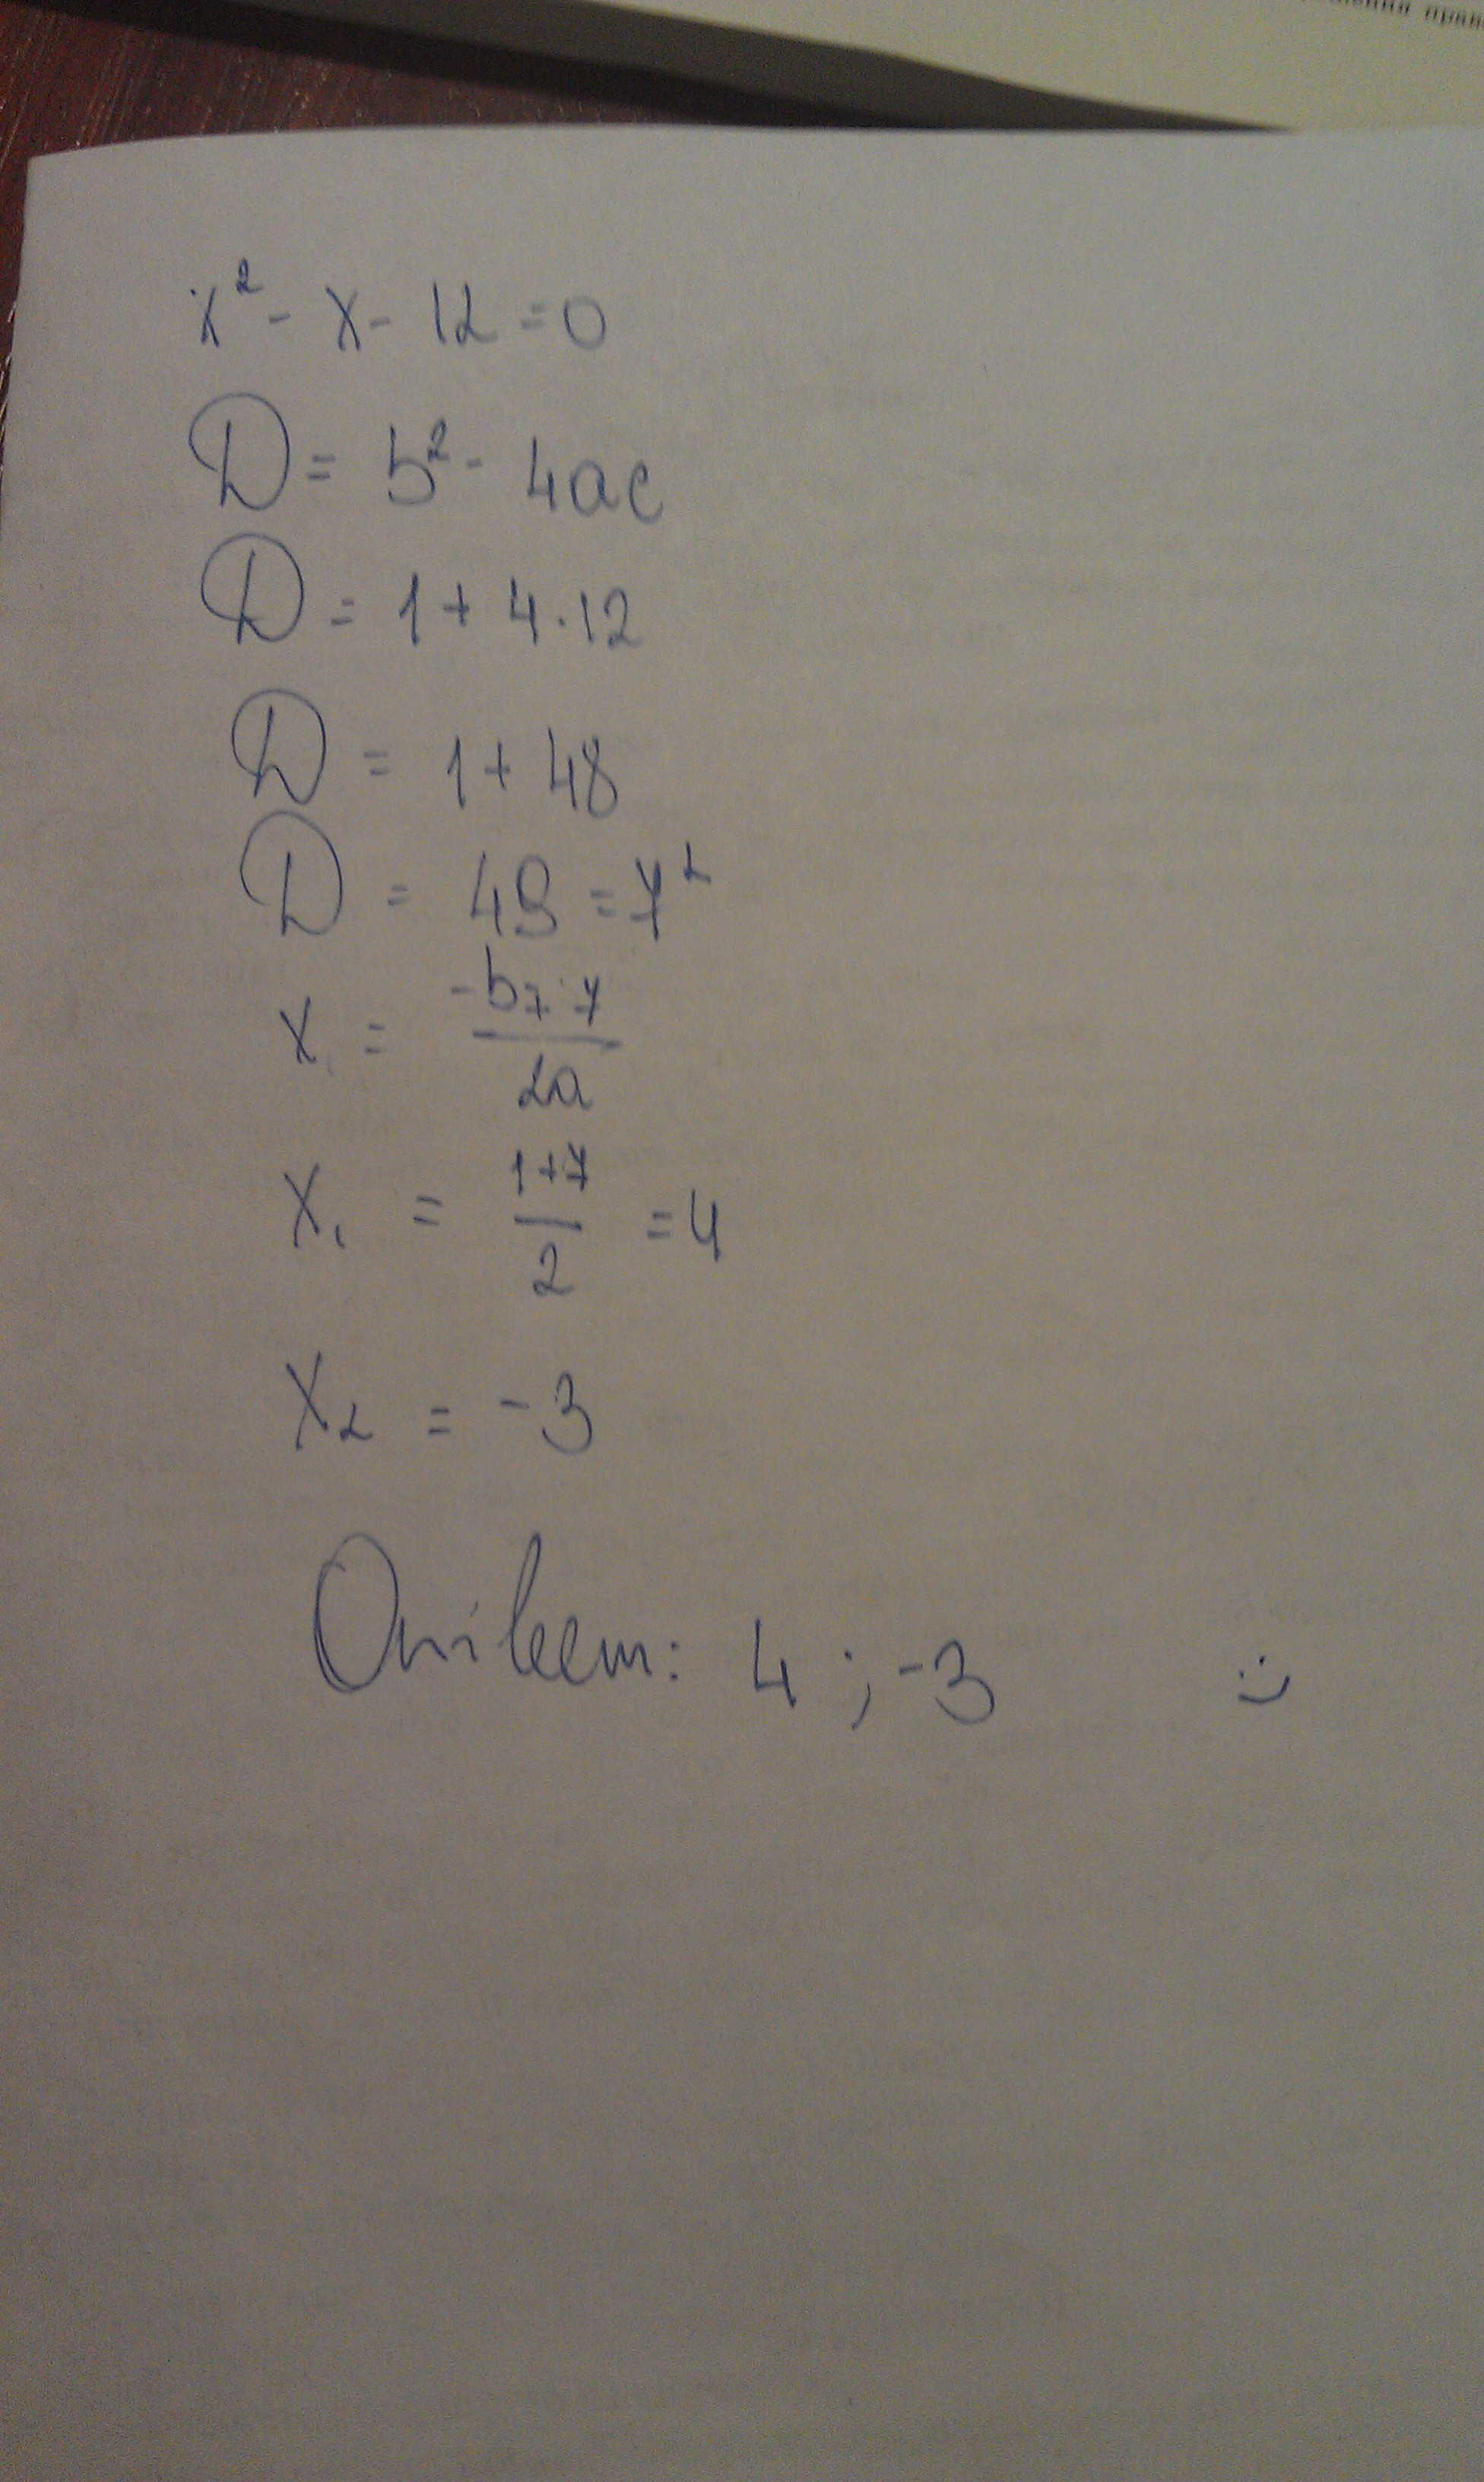 ения прав
x² - x - 12 = 0
D = b² - 4ac
D = 1 + 4·12
D = 1 + 48
D = 49 = 7²
x = -b ∓ 7 / 2a
x₁ = 1+7 / 2 = 4
x₂ = -3
Ответ: 4 ; -3 :)